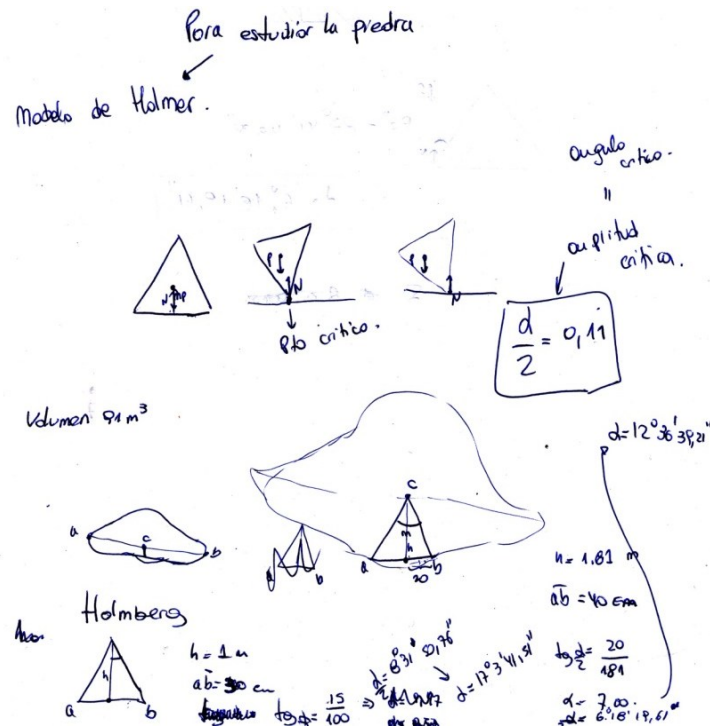 Para estudiar la piedra
Modelo de Holmer.
angulo critico.
"
amplitud critica.
d/2 = 0,11
N
P
N
P
N
Pto critico.
Volumen 91 m³
α = 12° 36' 39,21"
a
c
b
c
m
h
a
b
20
b
h = 1.81 m
ab = 40 cm
tg α/2 = 20/181
Holmberg
h
a
b
h = 1 m
ab = 30 cm
tg α/2 = 15/100
α/2 = 8° 31' 50,76"
α = 17° 3' 41,51"